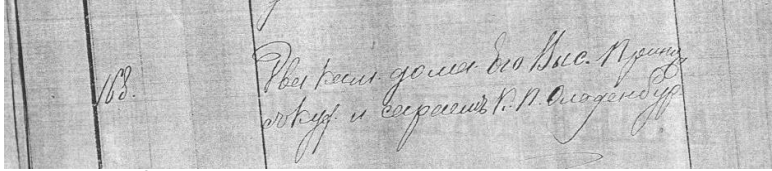 168.
Два кам. дома Его Выс. Принц
съ кух. и сараемъ К. П. Ольденбур